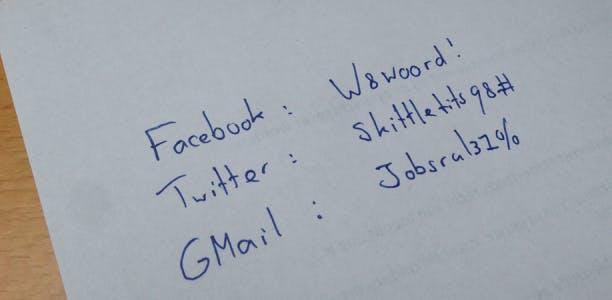 Facebook : W8woord!
Twitter : Skittletits98#
GMail : Jobsrul31%